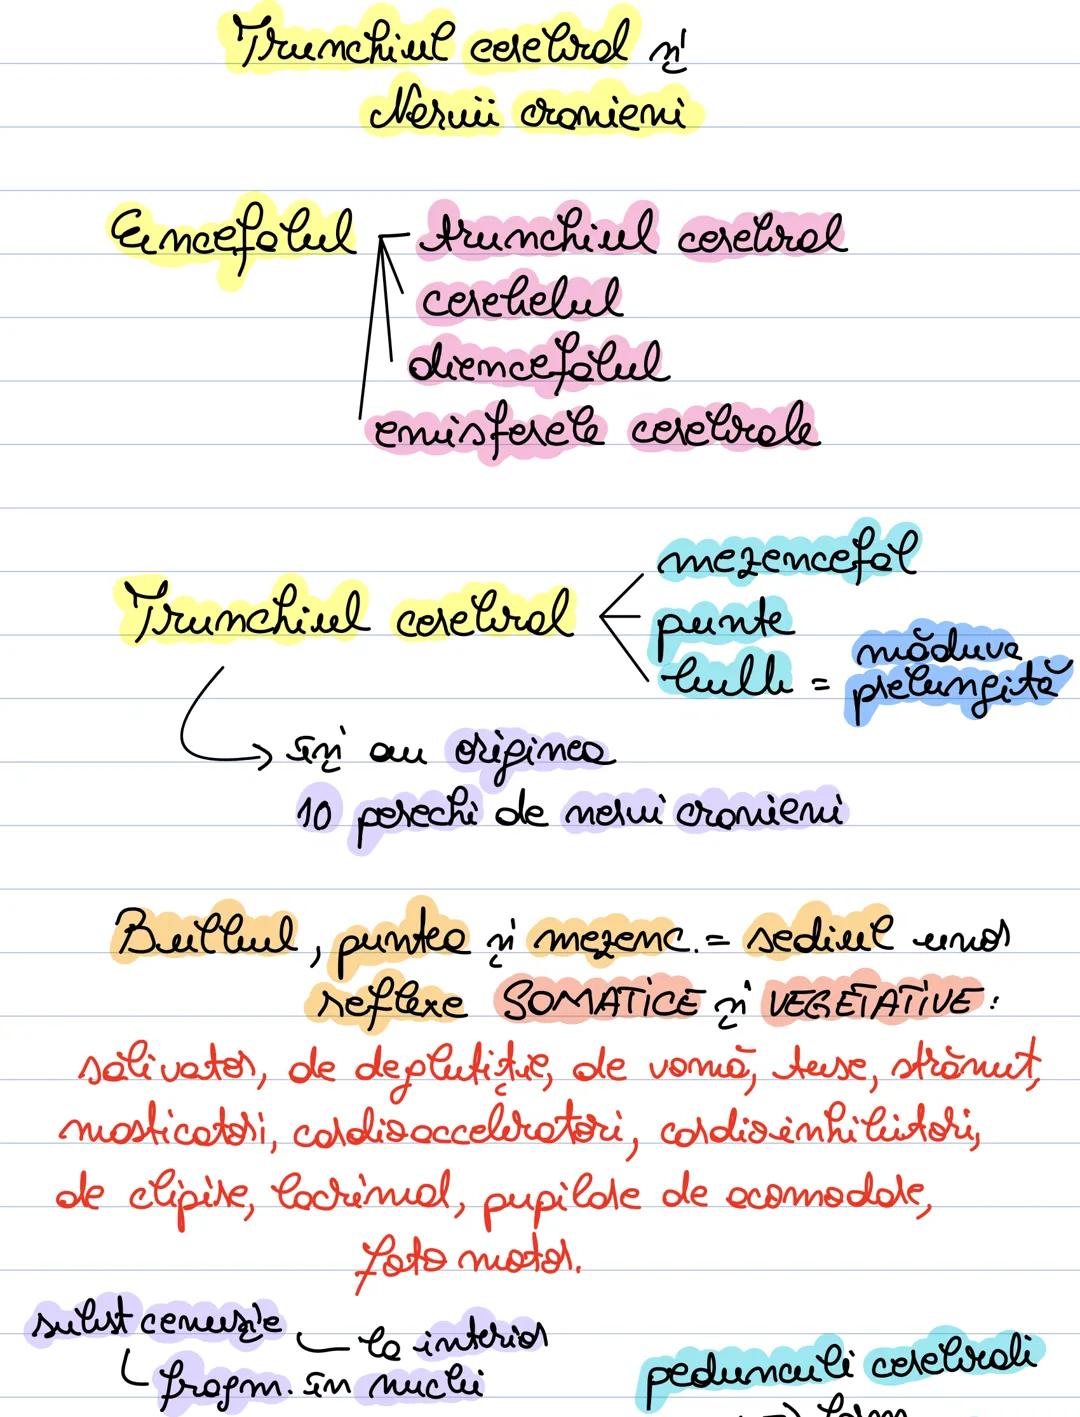 Trunchiul cerebral și
Nervii cranieni
Encefalul
trunchiul cerebral
cerebelul
diencefalul
emisferele cerebrale
Trunchiul cerebral
mezencefal
punte
bulb = măduva
prelungită
își au originea
10 perechi de nervi cranieni
Bulbul, puntea și mezenc. = sediul unor
reflexe SOMATICE și VEGETATIVE:
salivator, de deglutiție, de vomă, tuse, strănut,
masticatori, cardioacceleratori, cardioinhibitori,
de clipire, lacrimal, pupilare de acomodare,
fotomotor.
subst cenușie
la interior
fragm. în nuclei
pedunculi cerebrali